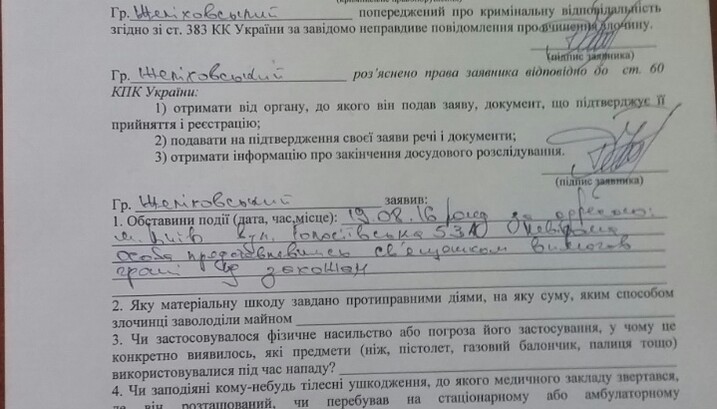 Гр. Желіховський попереджений про кримінальну відповідальність
згідно зі ст. 383 КК України за завідомо неправдиве повідомлення про вчинення злочину.
(підпис заявника)
Гр. Желіховський роз'яснено права заявника відповідно до ст. 60
КПК України:
1) отримати від органу, до якого він подав заяву, документ, що підтверджує її
прийняття і реєстрацію;
2) подавати на підтвердження своєї заяви речі і документи;
3) отримати інформацію про закінчення досудового розслідування.
(підпис заявника)
Гр. Желіховський заявив:
1. Обставини події (дата, час,місце): 19.08.16 року за адресою:
м. Київ вул. Голосіївська 53А невідома
особа представившись священиком вимагав
гроші
2. Яку матеріальну шкоду завдано протиправними діями, на яку суму, яким способом
злочинці заволоділи майном
3. Чи застосовувалося фізичне насильство або погроза його застосування, у чому це
конкретно виявилось, які предмети (ніж, пістолет, газовий балончик, палиця тощо)
використовувалися під час нападу?
4. Чи заподіяні кому-небудь тілесні ушкодження, до якого медичного закладу звертався,
де він розташований, чи перебував на стаціонарному або амбулаторному